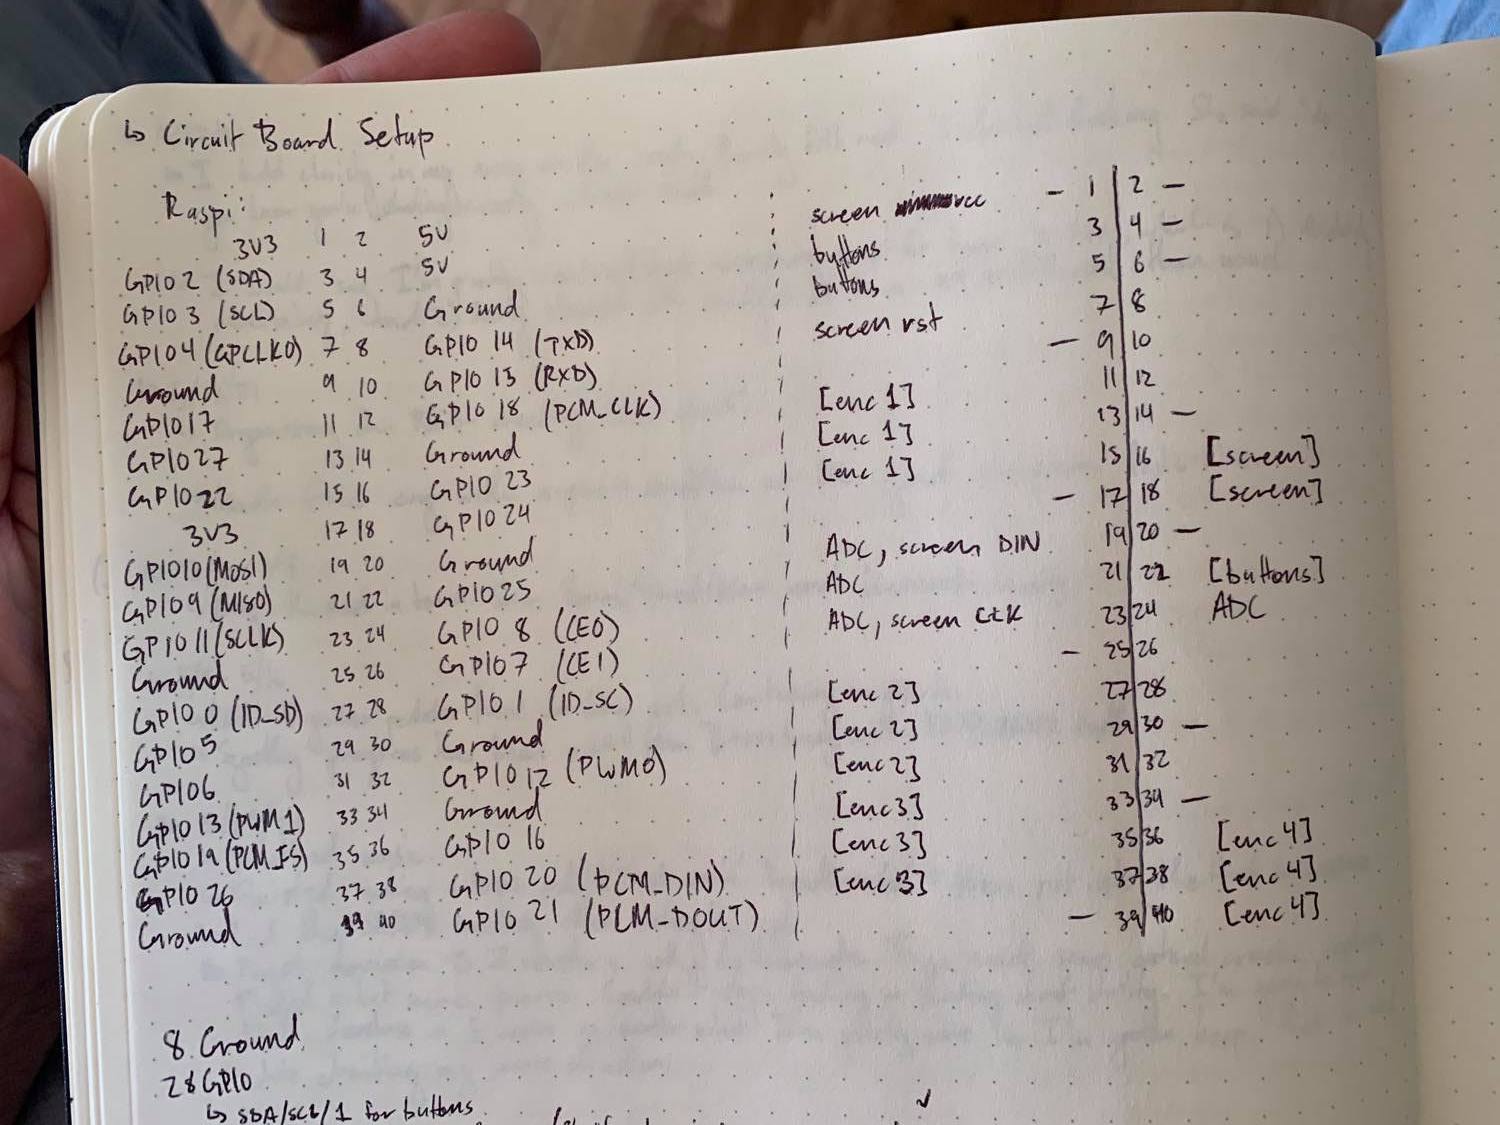 ↳ Circuit Board Setup
Raspi:
3V3 1 2 5V
GPIO 2 (SDA) 3 4 5V
GPIO 3 (SCL) 5 6 Ground
GPIO4 (GPCLK0) 7 8 GPIO 14 (TXD)
Ground 9 10 GPIO 15 (RXD)
GPIO17 11 12 GPIO 18 (PCM_CLK)
GPIO27 13 14 Ground
GPIO22 15 16 GPIO 23
3V3 17 18 GPIO24
GPIO10(MOSI) 19 20 Ground
GPIO9 (MISO) 21 22 GPIO25
GPIO11(SCLK) 23 24 GPIO 8 (CE0)
Ground 25 26 GPIO7 (CE1)
GPIO 0 (ID_SD) 27 28 GPIO 1 (ID_SC)
GPIO5 29 30 Ground
GPIO6 31 32 GPIO12 (PWM0)
GPIO13 (PWM1) 33 34 Ground
GPIO19 (PCM_FS) 35 36 GPIO 16
GPIO 26 37 38 GPIO 20 (PCM_DIN)
Ground 39 40 GPIO 21 (PCM_DOUT)
screen vcc – 1 2 –
buttons 3 4 –
buttons 5 6 –
screen rst 7 8
– 9 10
[enc 1] 11 12
[enc 1] 13 14 –
[enc 1] 15 16 [screen]
– 17 18 [screen]
ADC, screen DIN 19 20 –
ADC 21 22 [buttons]
ADC, screen CLK 23 24 ADC
– 25 26
[enc 2] 27 28
[enc 2] 29 30 –
[enc 2] 31 32
[enc 3] 33 34 –
[enc 3] 35 36 [enc 4]
[enc 3] 37 38 [enc 4]
– 39 40 [enc 4]
8 Ground
28 GPIO
↳ SDA/SCL/1 for buttons